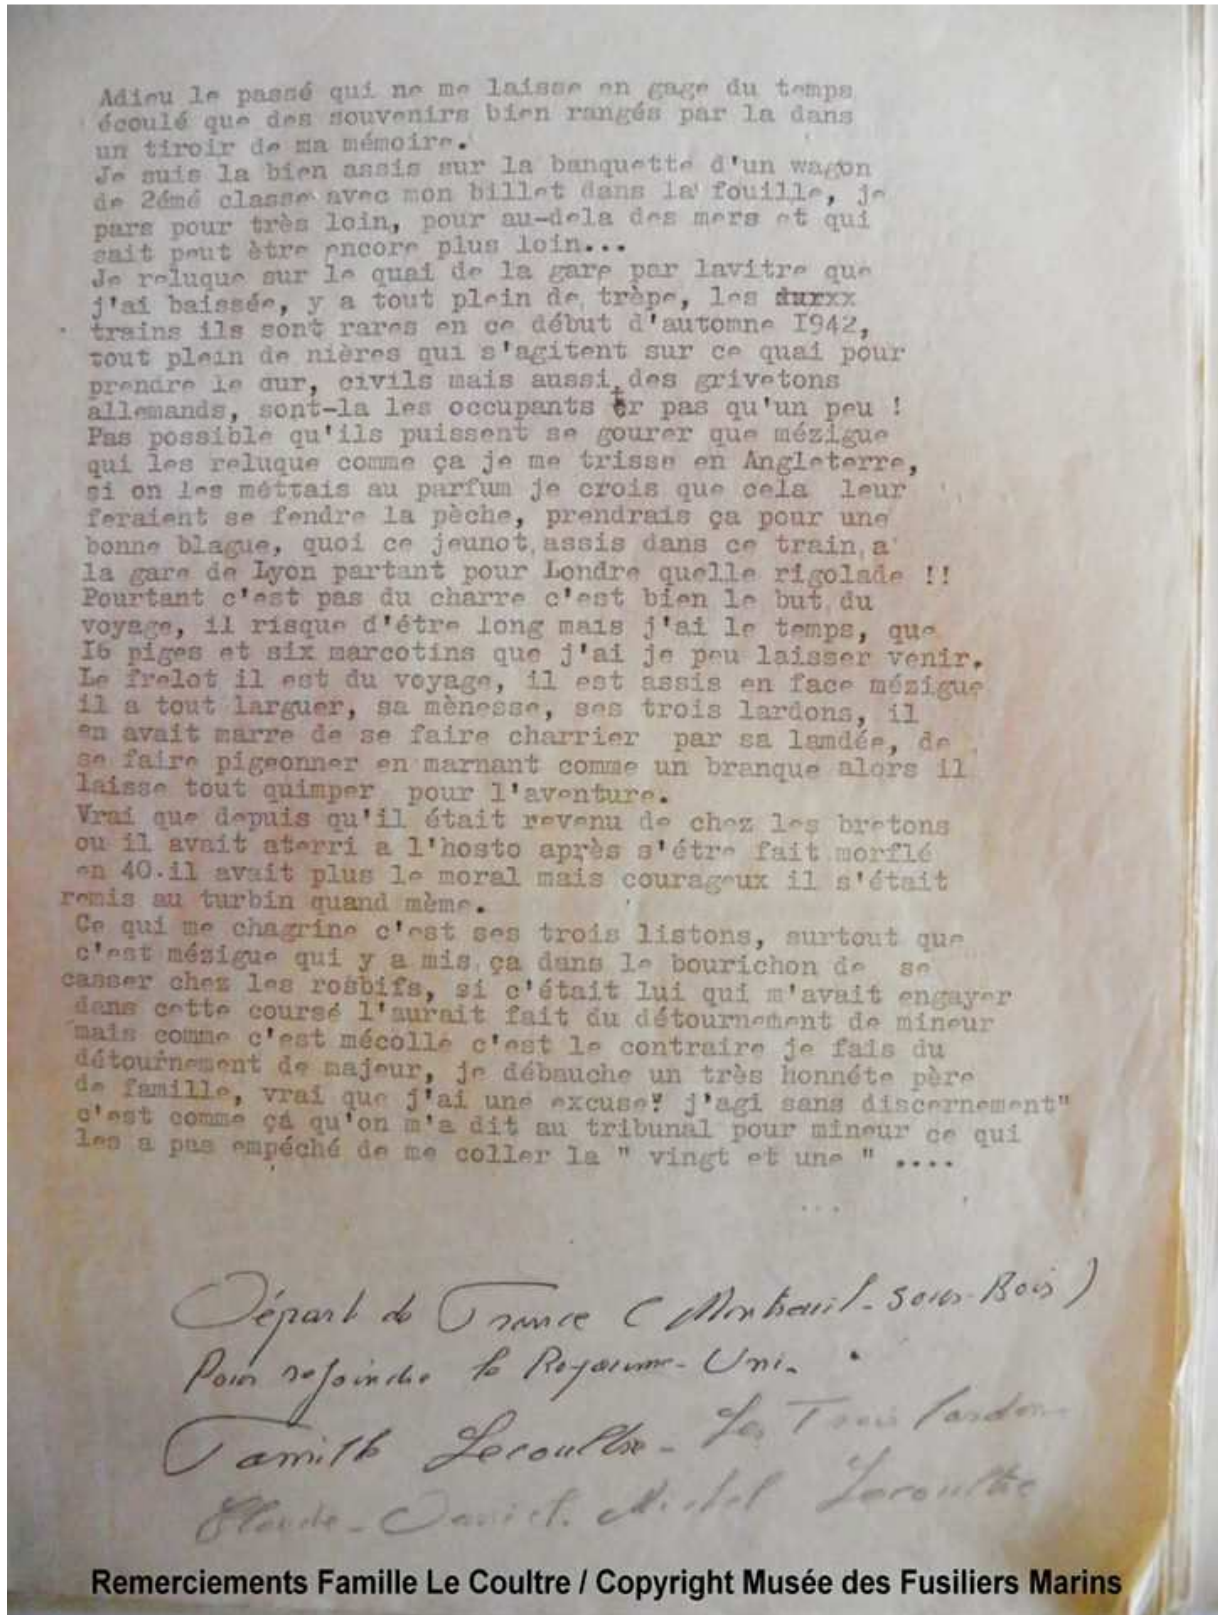 Adieu le passé qui ne me laisse en gage du temps
écoulé que des souvenirs bien rangés par la dans
un tiroir de ma mémoire.
Je suis la bien assis sur la banquette d'un wagon
de 2émé classe avec mon billet dans la fouille, je
pars pour très loin, pour au-dela des mers et qui
sait peut ètre encore plus loin...
Je reluque sur le quai de la gare par lavitre que
j'ai baissée, y a tout plein de trèpe, les durxx
trains ils sont rares en ce début d'automne I942,
tout plein de nières qui s'agitent sur ce quai pour
prendre le dur, civils mais aussi des grivetons
allemands, sont-la les occupants er pas qu'un peu !
Pas possible qu'ils puissent se gourer que mézigue
qui les reluque comme ça je me trisse en Angleterre,
si on les méttais au parfum je crois que cela leur
feraient se fendre la pèche, prendrais ça pour une
bonne blague, quoi ce jeunot assis dans ce train a
la gare de Lyon partant pour Londre quelle rigolade !!
Pourtant c'est pas du charre c'est bien le but du
voyage, il risque d'étre long mais j'ai le temps, que
I6 piges et six marcotins que j'ai je peu laisser venir.
Le frelot il est du voyage, il est assis en face mézigue
il a tout larguer, sa mènesse, ses trois lardons, il
en avait marre de se faire charrier par sa lamdée, de
se faire pigeonner en marnant comme un branque alors il
laisse tout quimper pour l'aventure.
Vrai que depuis qu'il était revenu de chez les bretons
ou il avait aterri a l'hosto après s'étre fait morflé
en 40.il avait plus le moral mais courageux il s'était
remis au turbin quand mème.
Ce qui me chagrine c'est ses trois listons, surtout que
c'est mézigue qui y a mis ça dans le bourichon de se
casser chez les rosbifs, si c'était lui qui m'avait engayer
dans cette coursé l'aurait fait du détournement de mineur
mais comme c'est mécolle c'est le contraire je fais du
détournement de majeur, je débauche un très honnéte père
de famille, vrai que j'ai une excuse" j'agi sans discernement"
c'est comme çà qu'on m'a dit au tribunal pour mineur ce qui
les a pas empéché de me coller la " vingt et une " ....
Départ de France ( Montreuil-sous-Bois )
Pour rejoindre le Royaume-Uni.
Famille Lecoultre - Les Trois lardons
Claude - Daniel. Michel Lecoultre
Remerciements Famille Le Coultre / Copyright Musée des Fusiliers Marins